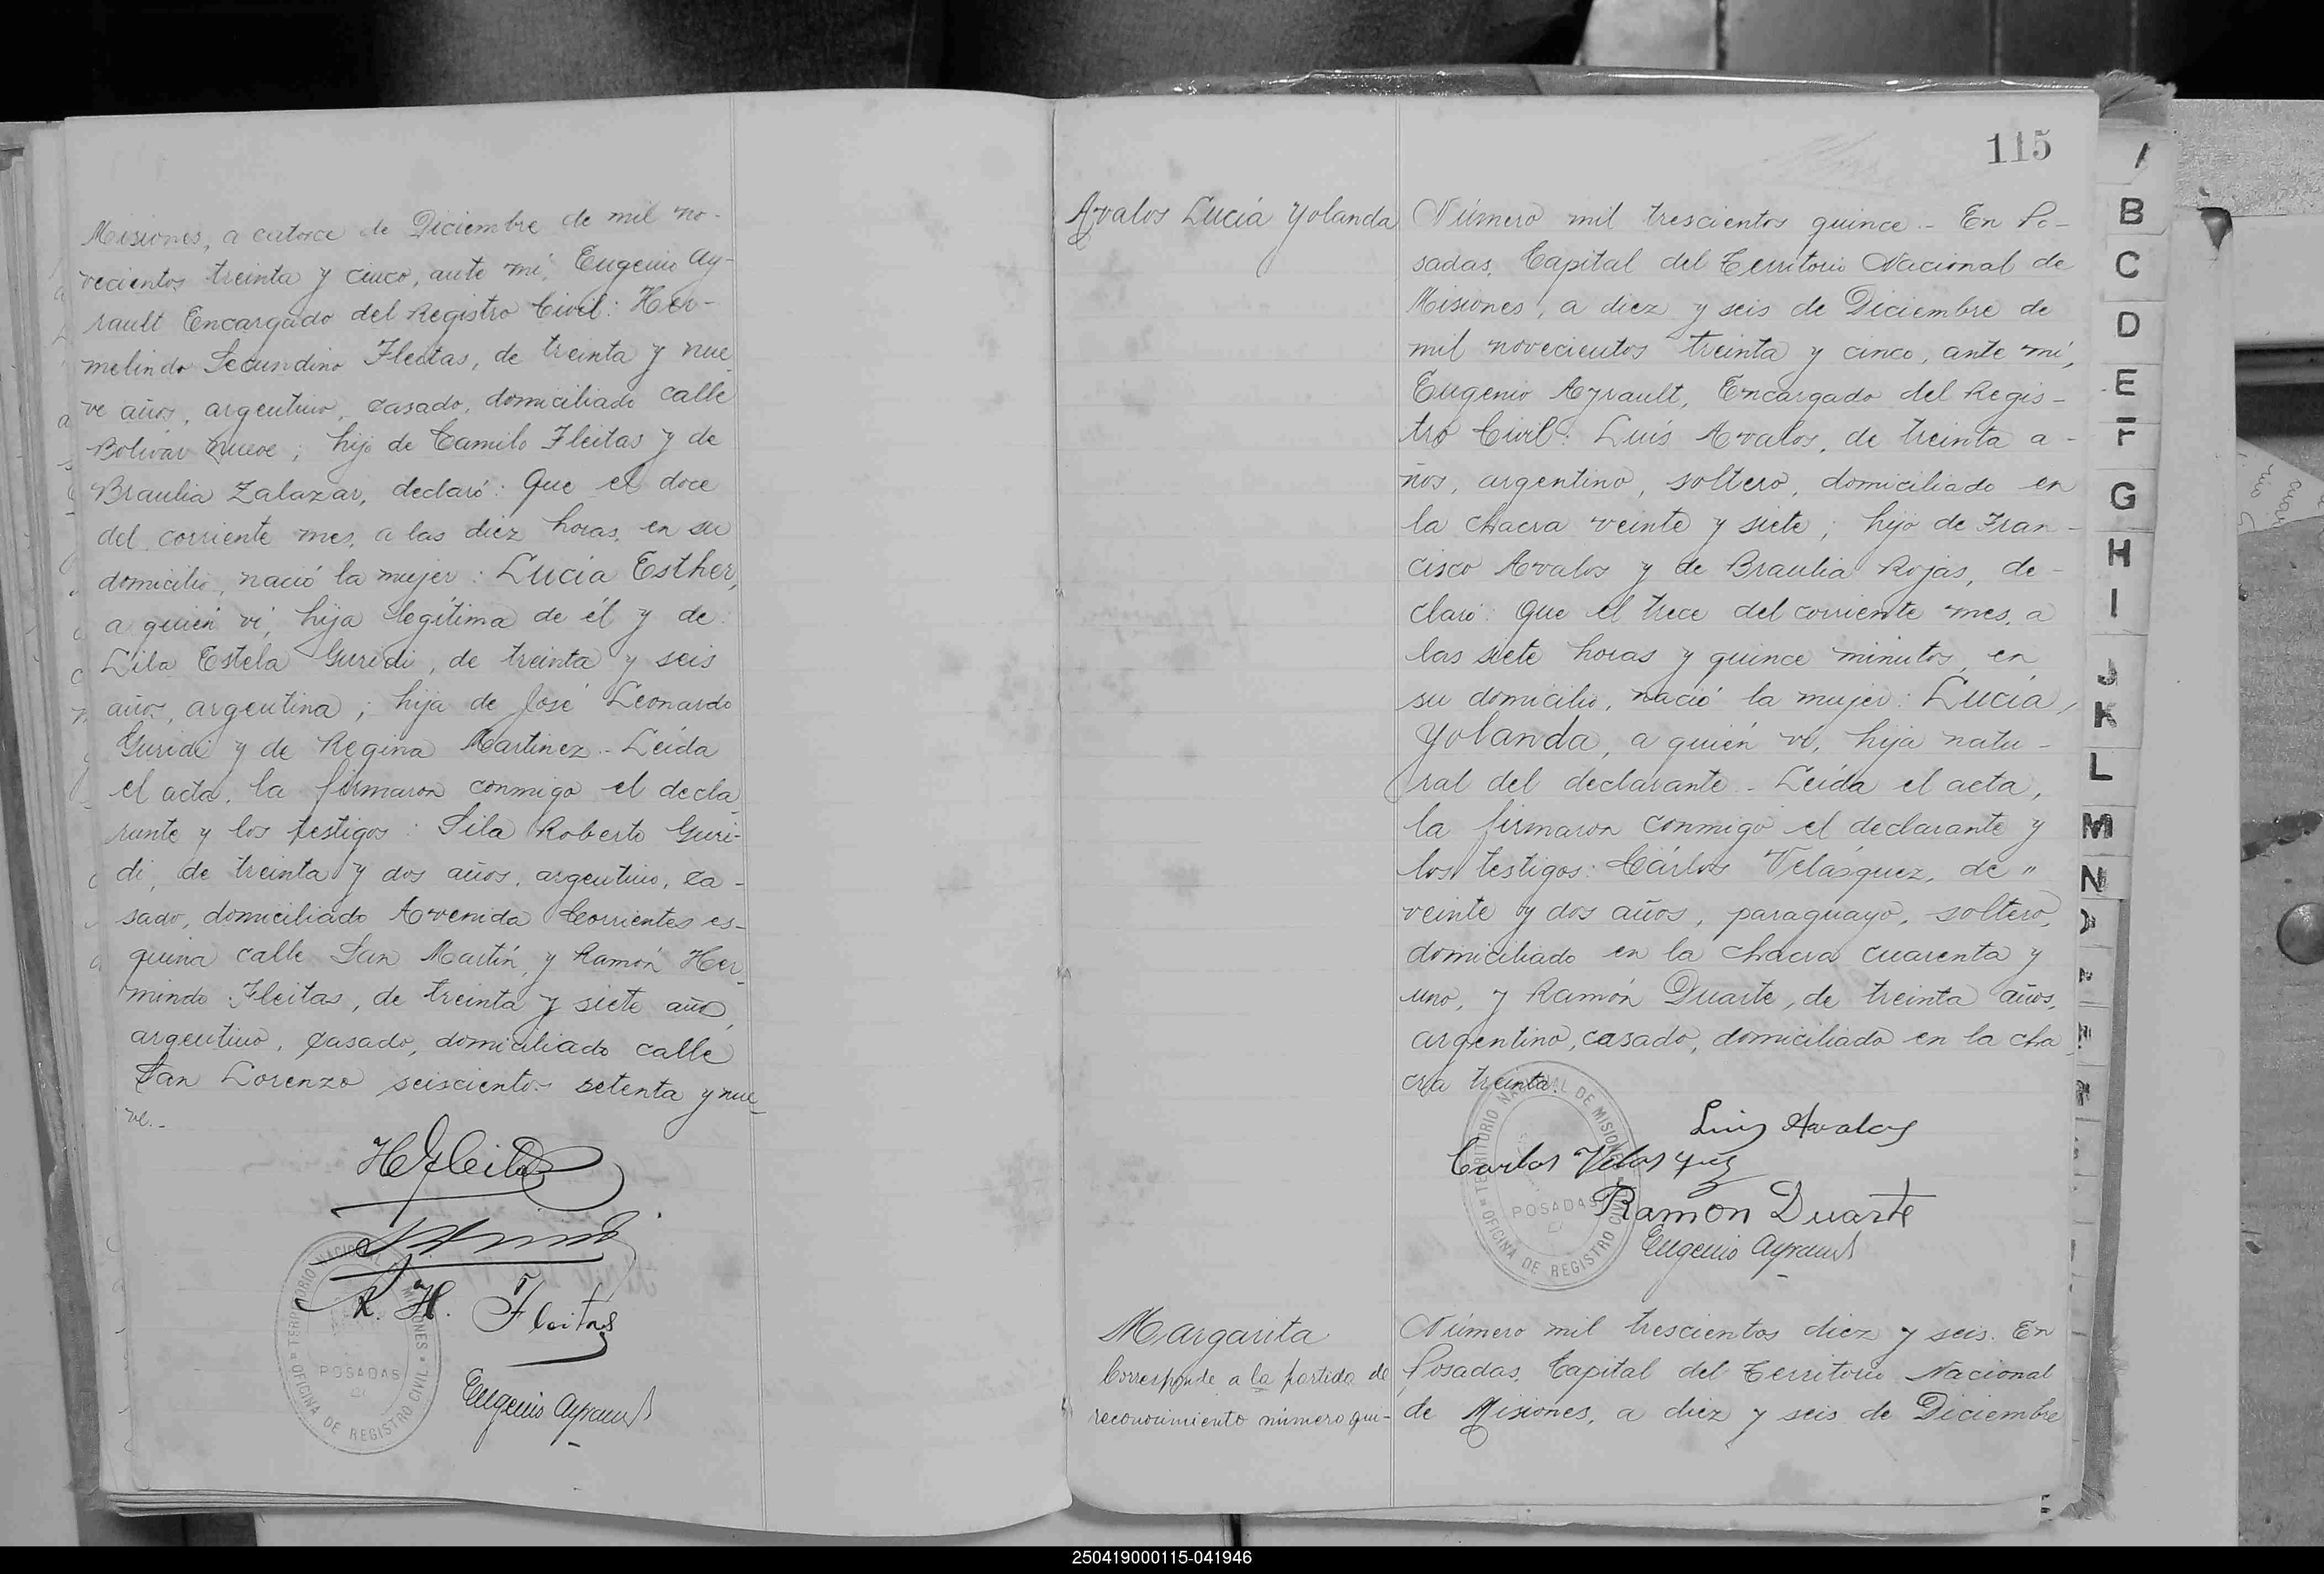 Misiones, a catorce de Diciembre de mil no-
vecientos treinta y cinco, ante mí, Eugenio Ay-
rault Encargado del Registro Civil: Her-
melindo Secundino Fleitas, de treinta y nue-
ve años, argentino, casado, domiciliado calle
Bolivar nueve; hijo de Camilo Fleitas y de
Braulia Zalazar, declaró: Que el doce
del corriente mes, a las diez horas, en su
domicilio, nació la mujer: Lucía Esther,
a quién ví, hija legítima de él y de
Lila Estela Guridi, de treinta y seis
años, argentina; hija de José Leonardo
Guridi y de Regina Martinez.- Leída
el acta, la firmaron conmigo el decla-
rante y los testigos: Sila Roberto Guri-
di, de treinta y dos años, argentino, ca-
sado, domiciliado Avenida Corrientes es-
quina calle San Martín, y Ramón Her-
mindo Fleitas, de treinta y siete año,
argentino, casado, domiciliado calle
San Lorenzo seiscientos setenta y nue-
ve.-
H Fleitas
R. H. Fleitas
Eugenio Ayrault
TERRITORIO NACIONAL DE MISIONES
POSADAS
OFICINA DE REGISTRO CIVIL
115
Avalos Lucía Yolanda
Número mil trescientos quince.- En Po-
sadas, Capital del Territorio Nacional de
Misiones, a diez y seis de Diciembre de
mil novecientos treinta y cinco, ante mí,
Eugenio Ayrault, Encargado del Regis-
tro Civil: Luís Avalos, de treinta a-
ños, argentino, soltero, domiciliado en
la chacra veinte y siete; hijo de Fran-
cisco Avalos y de Braulia Rojas, de-
claró: Que el trece del corriente mes, a
las siete horas y quince minutos, en
su domicilio, nació la mujer: Lucía,
Yolanda, a quién ví, hija natu-
ral del declarante.- Leída el acta,
la firmaron conmigo el declarante y
los testigos: Cárlos Velásquez, de "
veinte y dos años, paraguayo, soltero,
domiciliado en la chacra cuarenta y
uno, y Ramón Duarte, de treinta años,
argentino, casado, domiciliado en la cha-
cra treinta.
Luis Avalos
Carlos Velasquez
Ramon Duarte
Eugenio Ayrault
TERRITORIO NACIONAL DE MISIONES
POSADAS
OFICINA DE REGISTRO CIVIL
Margarita
Corresponde a la partida de
reconocimiento número qui-
Número mil trescientos diez y seis. En
Posadas, Capital del Territorio Nacional
de Misiones, a diez y seis de Diciembre
B
C
D
E
F
G
H
I
J
K
L
M
N
250419000115-041946